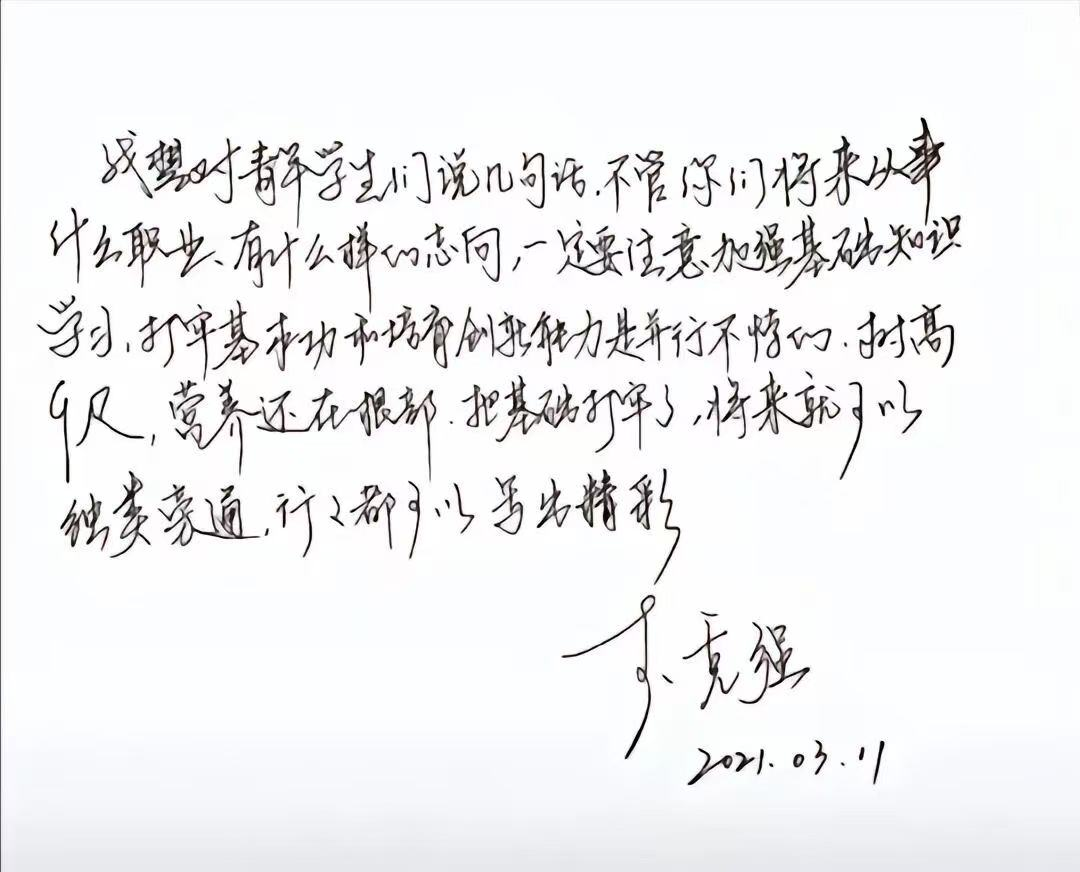 我想对青年学生们说几句话,不管你们将来从事
什么职业、有什么样的志向,一定要注意加强基础知识
学习,打牢基本功和培育创新能力是并行不悖的.树高
千尺,营养还在根部.把基础打牢了,将来就可以
触类旁通,行行都可以写出精彩
李克强
2021.03.11